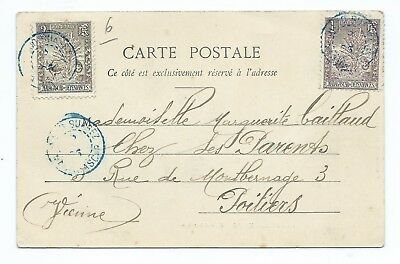 6
CARTE POSTALE
Ce côté est exclusivement réservé à l'adresse
Mademoiselle Marguerite Caillaud
Chez Ses Parents
Rue de Montbernage 3
Poitiers
(Vienne)